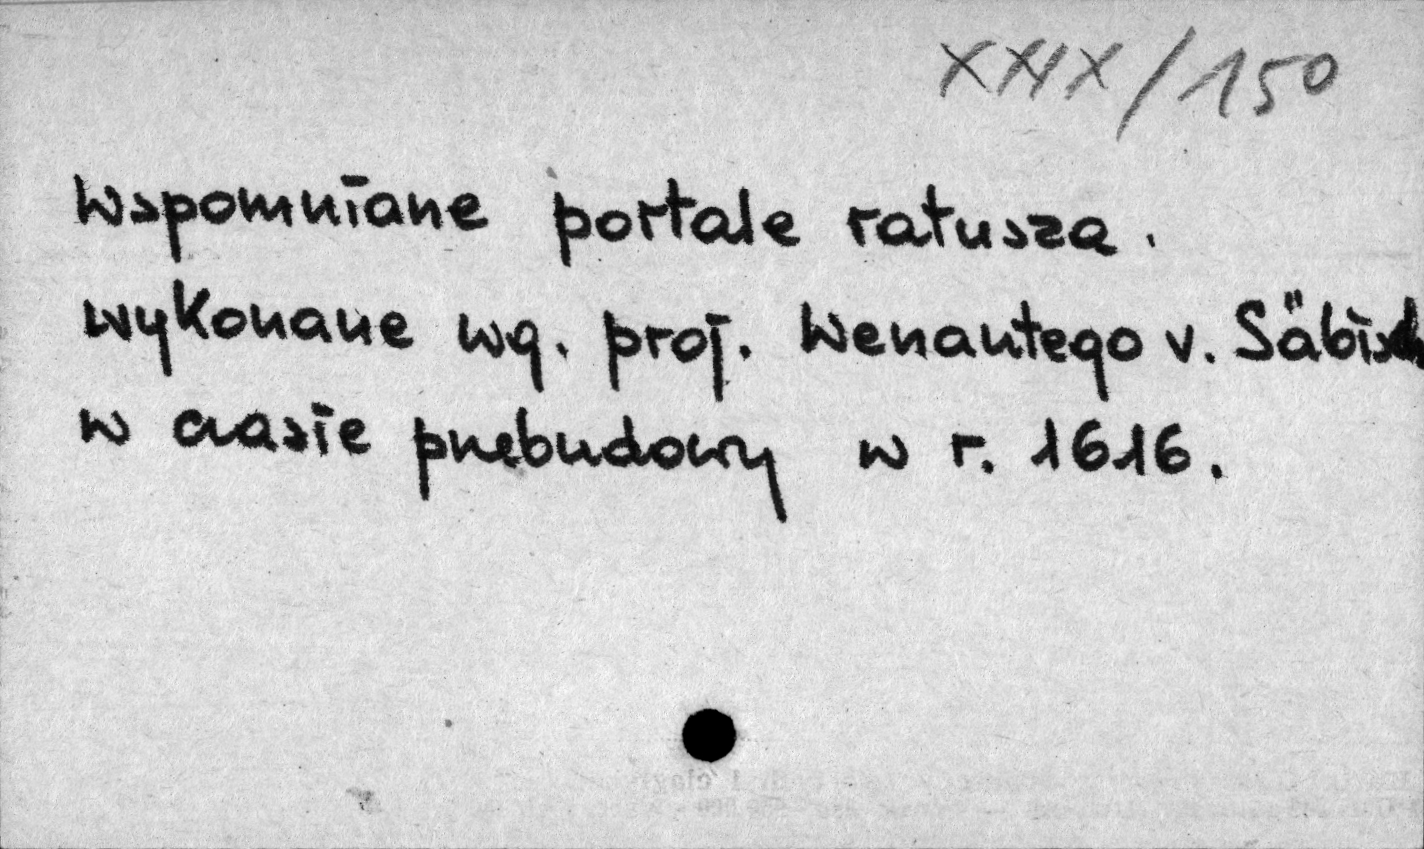 XXIX/150
Wspomniane portale ratusza.
wykonane wg. proj. Wenantego v. Säbisch
w czasie przebudowy w r. 1616.